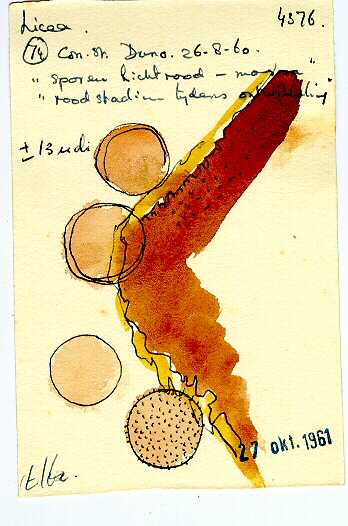 Licea.
4376.
(74) Con. Sn. Duno. 26-8-60.
" sporen lichtrood –
" roodstadium tijdens ontwikkeling "
± 13 u di
27 okt. 1961